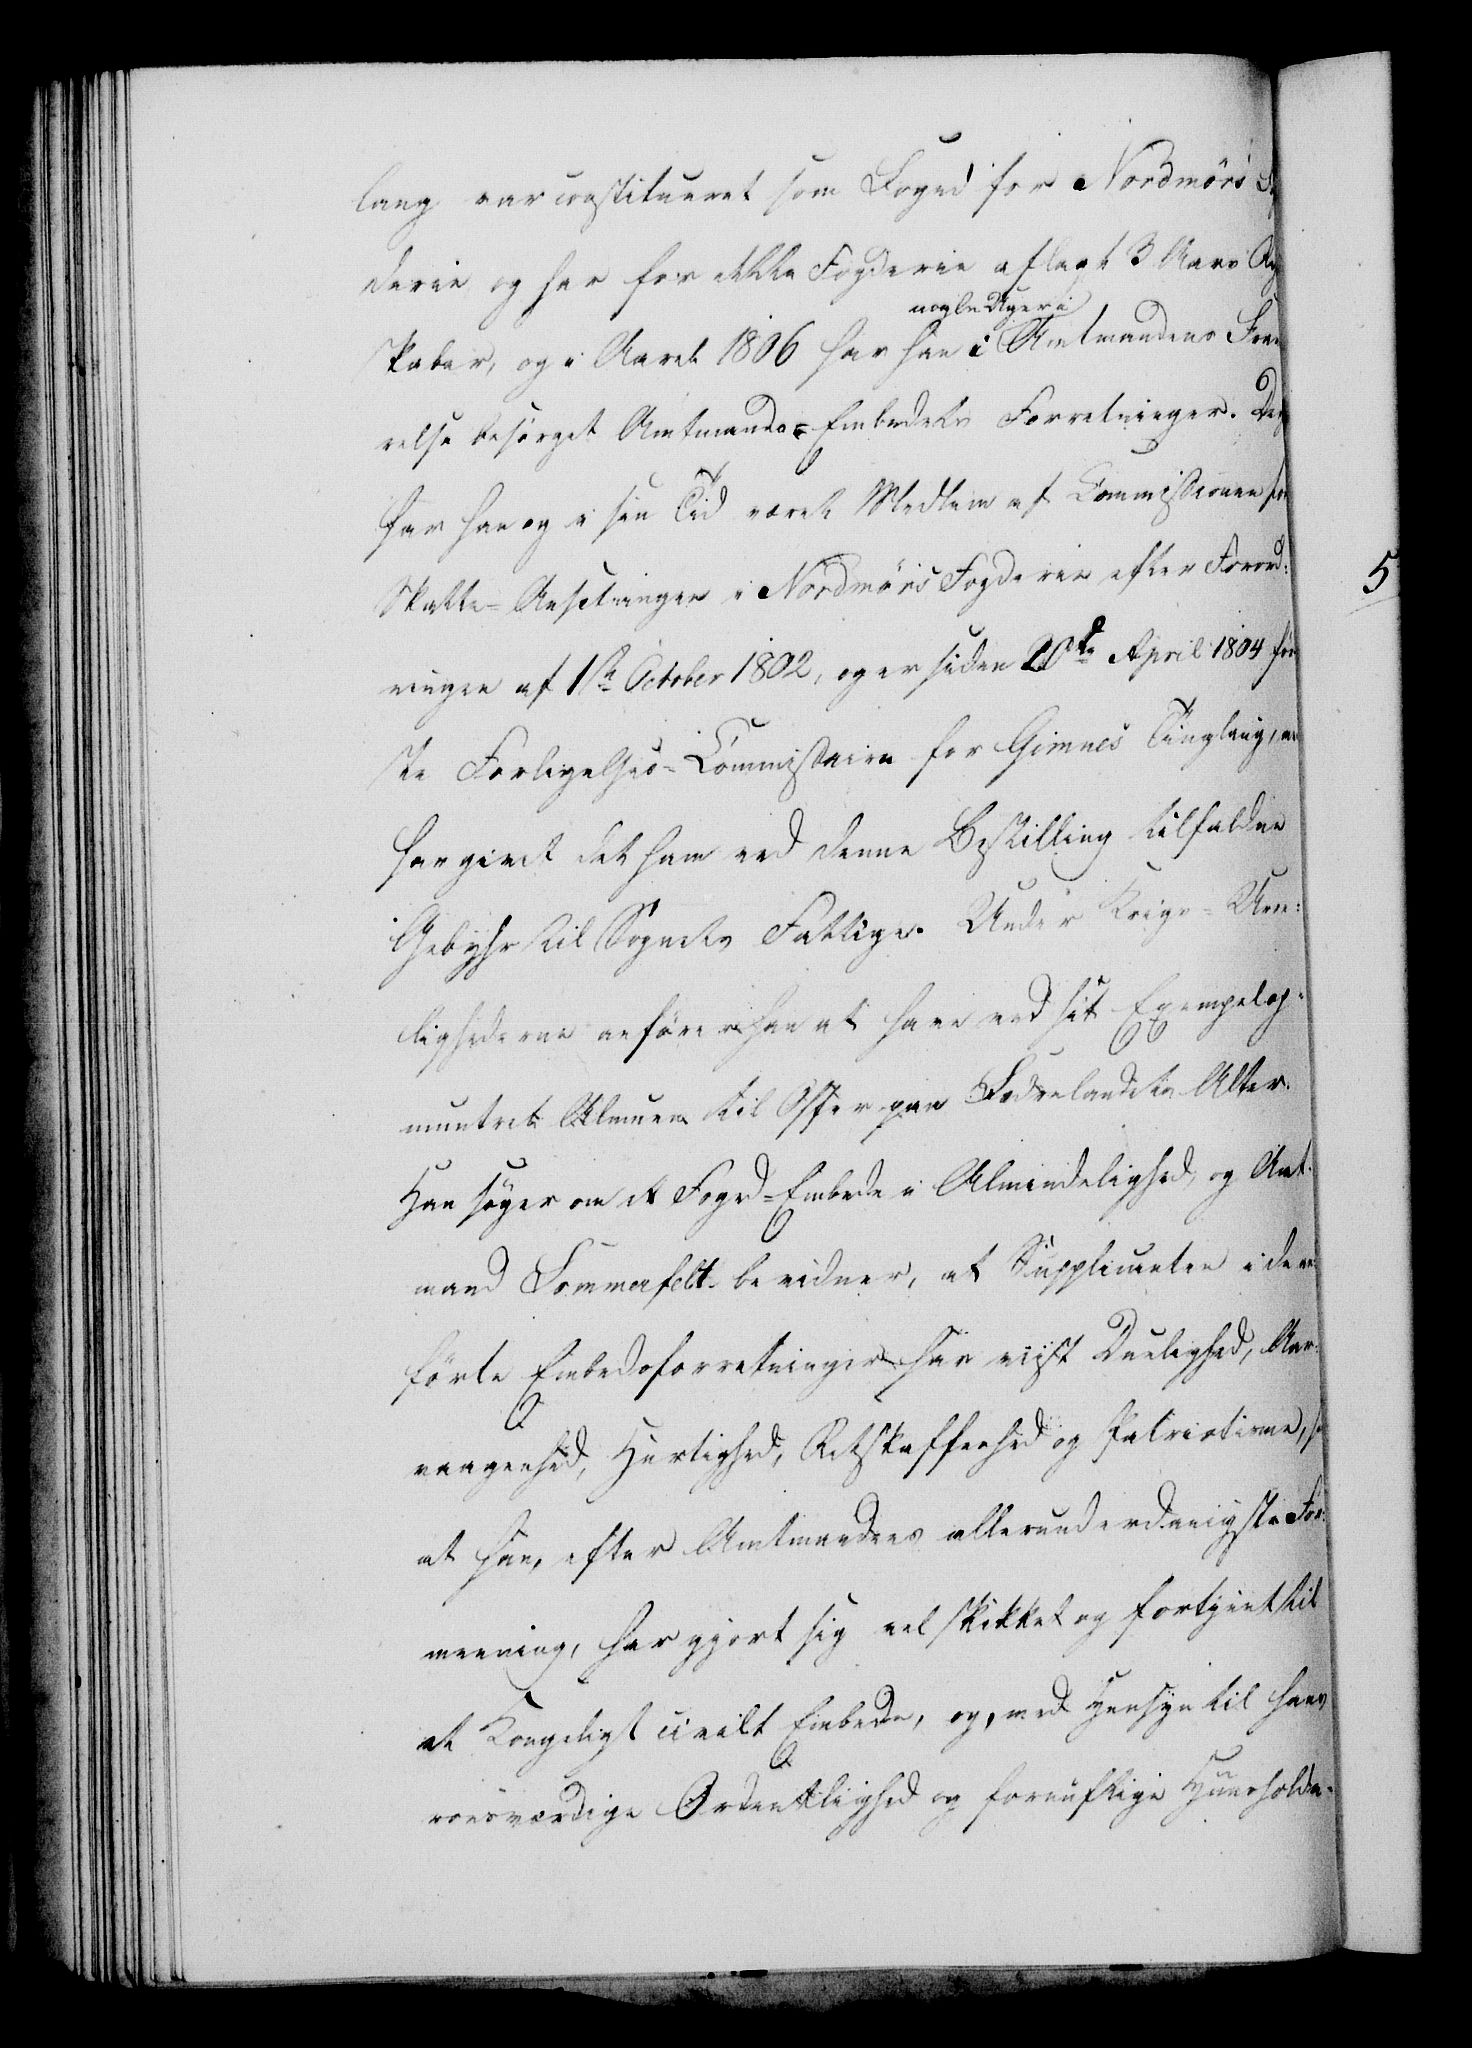 lang var constitueret som Foged for Nordmörs
derie og har for dette Fogderie aflagt 3 Aars
nogle Uger i
skaber, og i Aaret 1806 har han i Amtmandens
relse besörget Amtmands-Embedets Forretninger.
har han og i sin Tid været Medlem af Commissionen
Skatte-Ansetningen i Nordmörs Fogderie efter Forord:
ningen af 1ste October 1802, og er siden 20de April 1804
ste Forligelses-Commissaire for Gimnes Tinglaug,
har givet det ham ved denne Bestilling tilfaldne
Gebyhr til Sognets Fattige. Under Krigs-Uroe:
lighederne anförer han at have ved sit Exempel op-
muntret Almuen til Offer paa Fædrelandets Alter.
Han söger om et Foged-Embede i Almindelighed, og Amt-
mand Sommerfelt bevidner, at Supplicanten i de
förte Embedsforretninger har viist Duelighed, Aar-
vaagenhed, Hurtighed, Retskaffenhed og Patriotisme,
at han, efter Amtmandens allerunderdanigste For:
meening, har gjort sig vel skikket og fortjent til
et Kongeligt civilt Embede, og, med Hensyn til hans
roesværdige Ordentlighed og fornuftige Huusholdn-
5